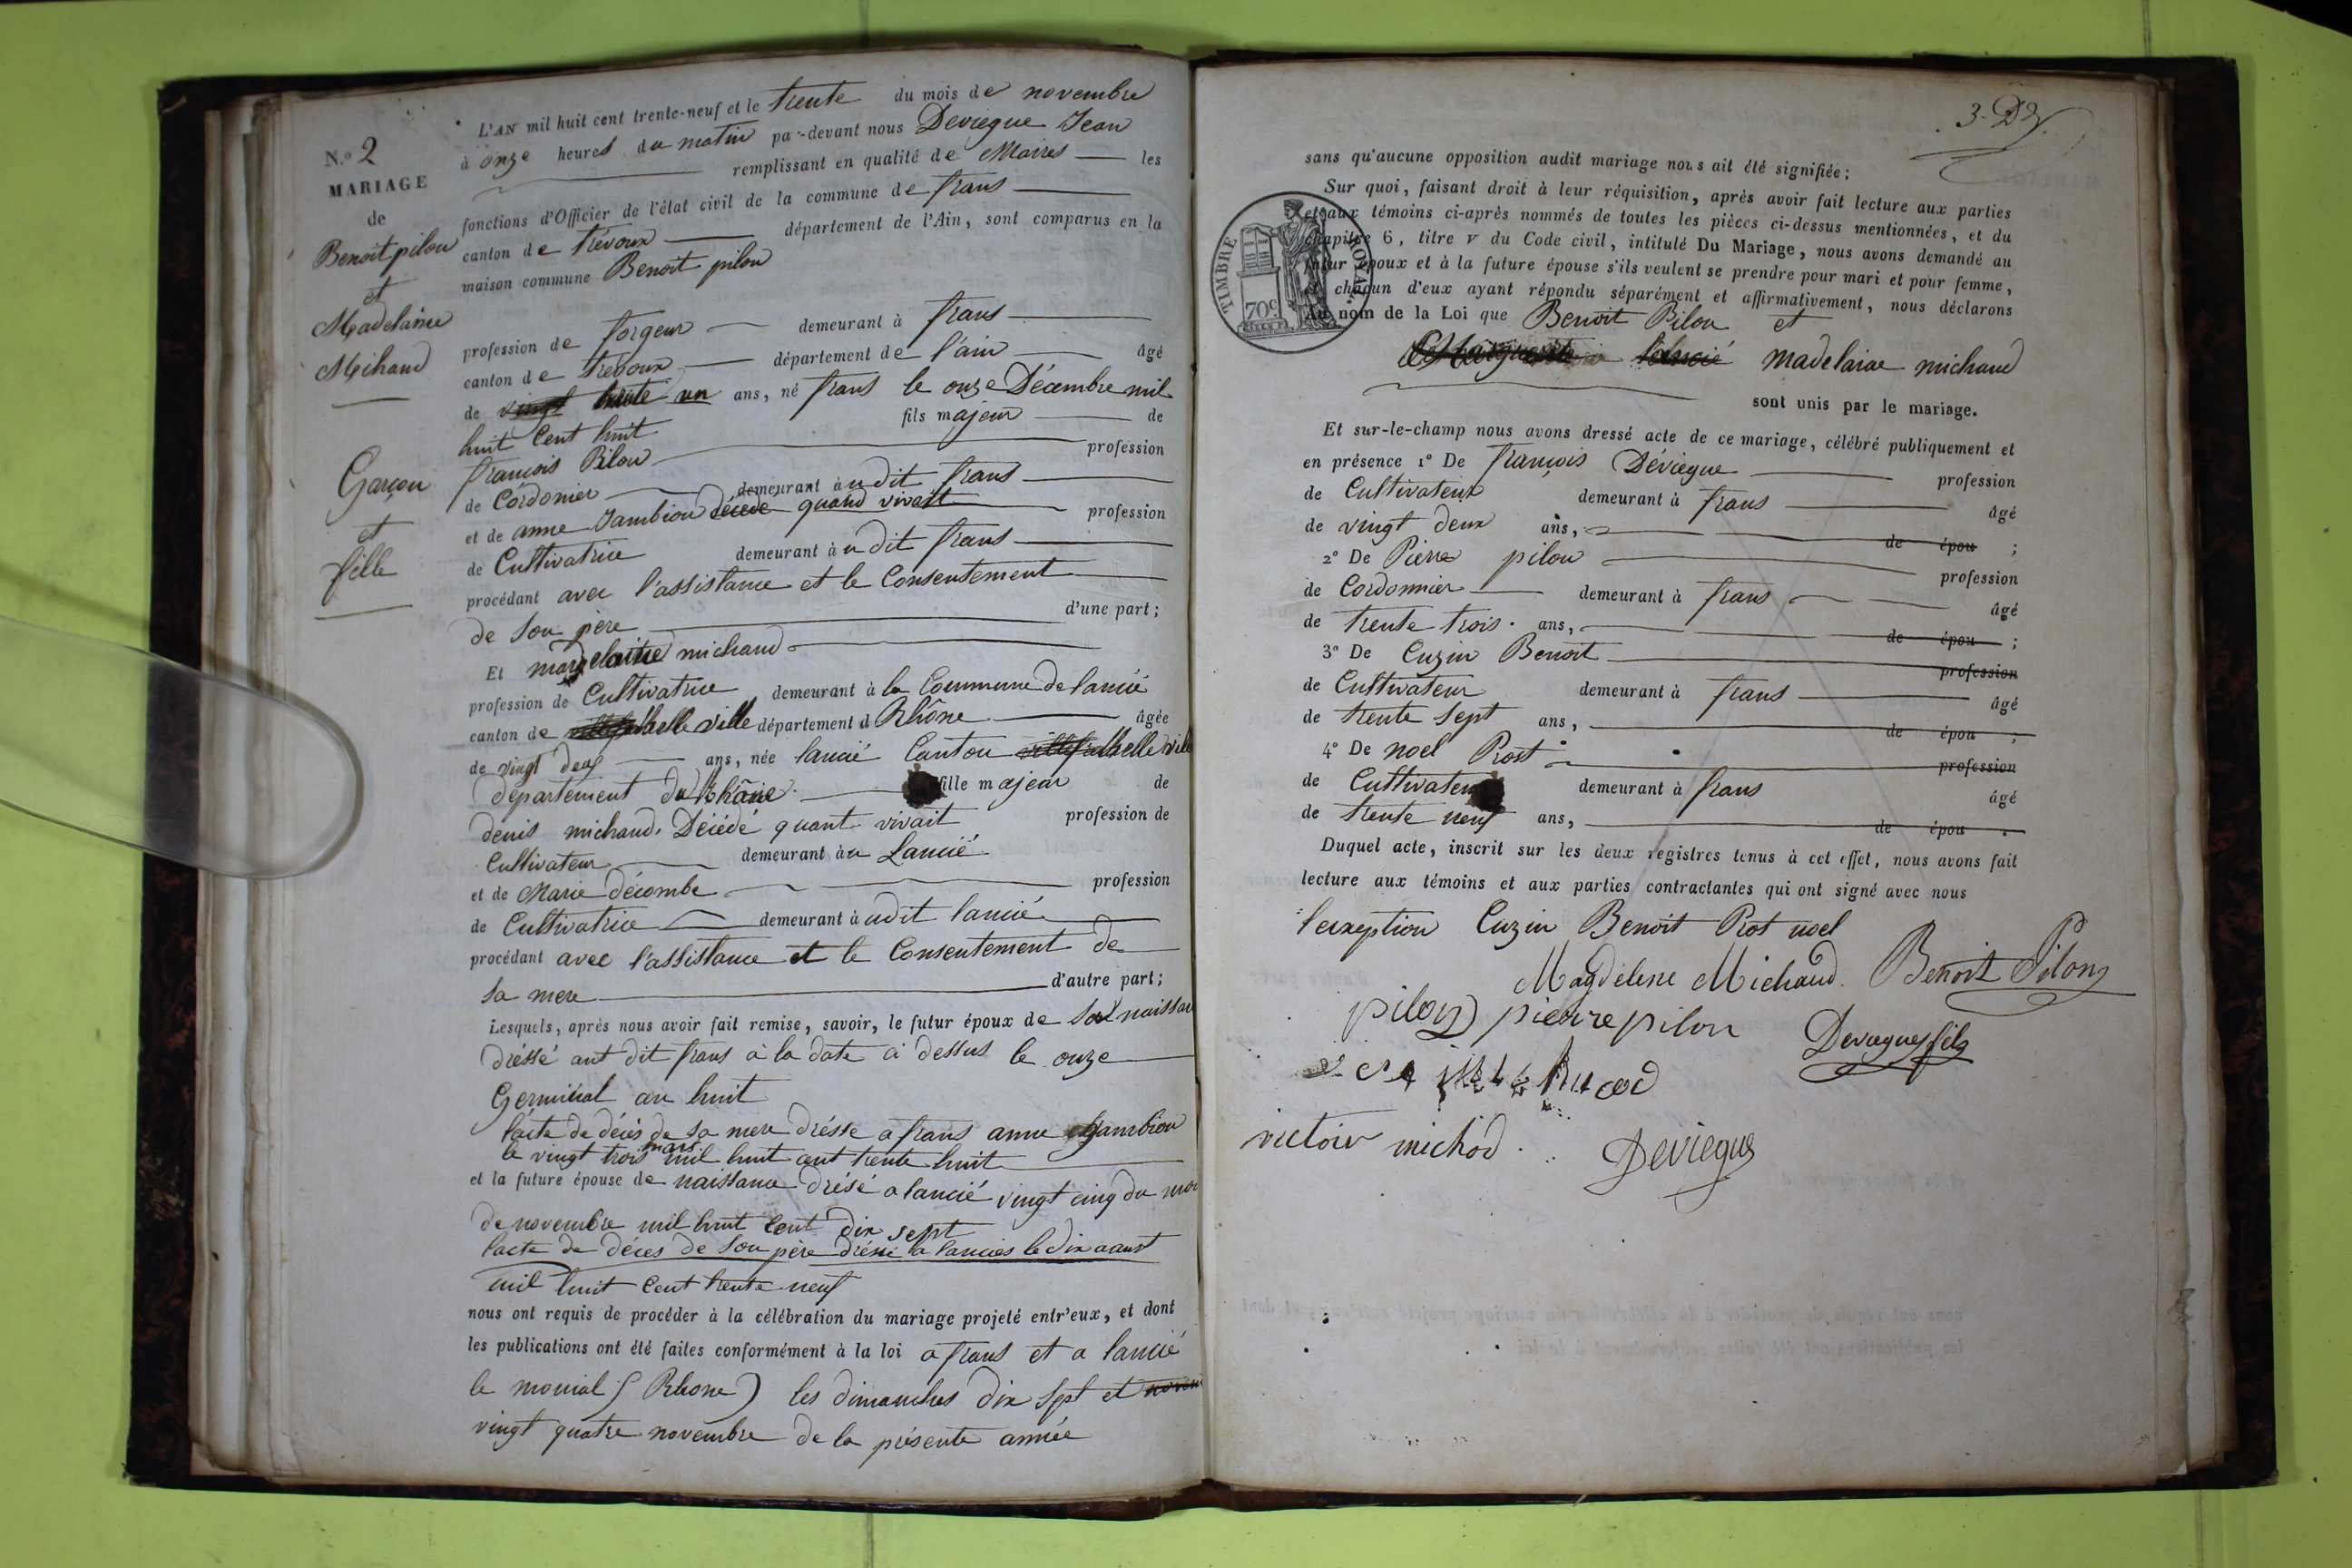 N.o 2
MARIAGE
de
Benoit pilon
et
Madelaine
Michaud
Garçon
et
fille
L'AN mil huit cent trente-neuf et le trente du mois de novembre
à onze heures du matin par-devant nous Deviegue Jean
remplissant en qualité de Maires les
fonctions d'Officier de l'état civil de la commune de frans
canton de trévoux département de l'Ain, sont comparus en la
maison commune Benoit pilon
profession de forgeur demeurant à frans
canton de trévoux département de l'ain âgé
de vingt trente un ans, né frans le onze Décembre mil
huit Cent huit fils majeur de
françois Pilon profession
de Cordonier demeurant à u dit frans
et de anne Jambion décédé quand vivait profession
de Cultivatrice demeurant à u dit frans
procédant avec l'assistance et le Consentement
de son père d'une part;
Et magdelaine michaud
profession de Cultivatrice demeurant à la Commune de lancié
canton de belle ville département d Rhône âgée
de vingt deux ans, née lancié Canton belle ville
département du Rhône fille majeur de
denis michaud Décédé quant vivait profession de
Cultivateur demeurant à u Lancié
et de Marie décombe profession
de Cultivatrice demeurant à udit lancié
procédant avec l'assistance et le Consentement de
sa mere d'autre part;
Lesquels, après nous avoir fait remise, savoir, le futur époux de sa naissan
dréssé aut dit frans à la date ci dessus le onze
Germinal an huit
l'acte de décès de sa mere drésse a frans anne Jambion
le vingt trois mars mil huit cent trente huit
et la future épouse de naissance drésé a lancié vingt cinq du moi
de novembre mil huit Cent dix sept
l'acte de décès de son père drésse a lanciés le dix aoust
mil huit Cent trente neuf
nous ont requis de procéder à la célébration du mariage projeté entr'eux, et dont
les publications ont été faites conformément à la loi a frans et a lancié
le monial (Rhone) les dimanches dix sept et novem
vingt quatre novembre de la présente année
3.
sans qu'aucune opposition audit mariage nous ait été signifiée;
Sur quoi, faisant droit à leur réquisition, après avoir fait lecture aux parties
et aux témoins ci-après nommés de toutes les pièces ci-dessus mentionnées, et du
chapitre 6, titre V du Code civil, intitulé Du Mariage, nous avons demandé au
futur époux et à la future épouse s'ils veulent se prendre pour mari et pour femme,
et chacun d'eux ayant répondu séparément et affirmativement, nous déclarons
Au nom de la Loi que Benoit Pilon et
Marguerite lancié madelaine michaud
sont unis par le mariage.
TIMBRE ROYAL
70c
Et sur-le-champ nous avons dressé acte de ce mariage, célébré publiquement et
en présence 1° De françois Déviegue profession
de Cultivateur demeurant à frans âgé
de vingt deux ans, de épou ;
2° De Pierre pilon profession
de Cordonnier demeurant à frans âgé
de trente trois ans, de épou ;
3° De Cuzin Benoit profession
de Cultivateur demeurant à frans âgé
de trente sept ans, de épou ;
4° De noel Prost profession
de Cultivateur demeurant à frans âgé
de trente neuf ans, de épou .
Duquel acte, inscrit sur les deux registres tenus à cet effet, nous avons fait
lecture aux témoins et aux parties contractantes qui ont signé avec nous
l'exeption Cuzin Benoit Prot noel
Magdelene Michaud. Benoit Pilon
pilon pierre pilon Devieguesfils
victoir michod Deviegue